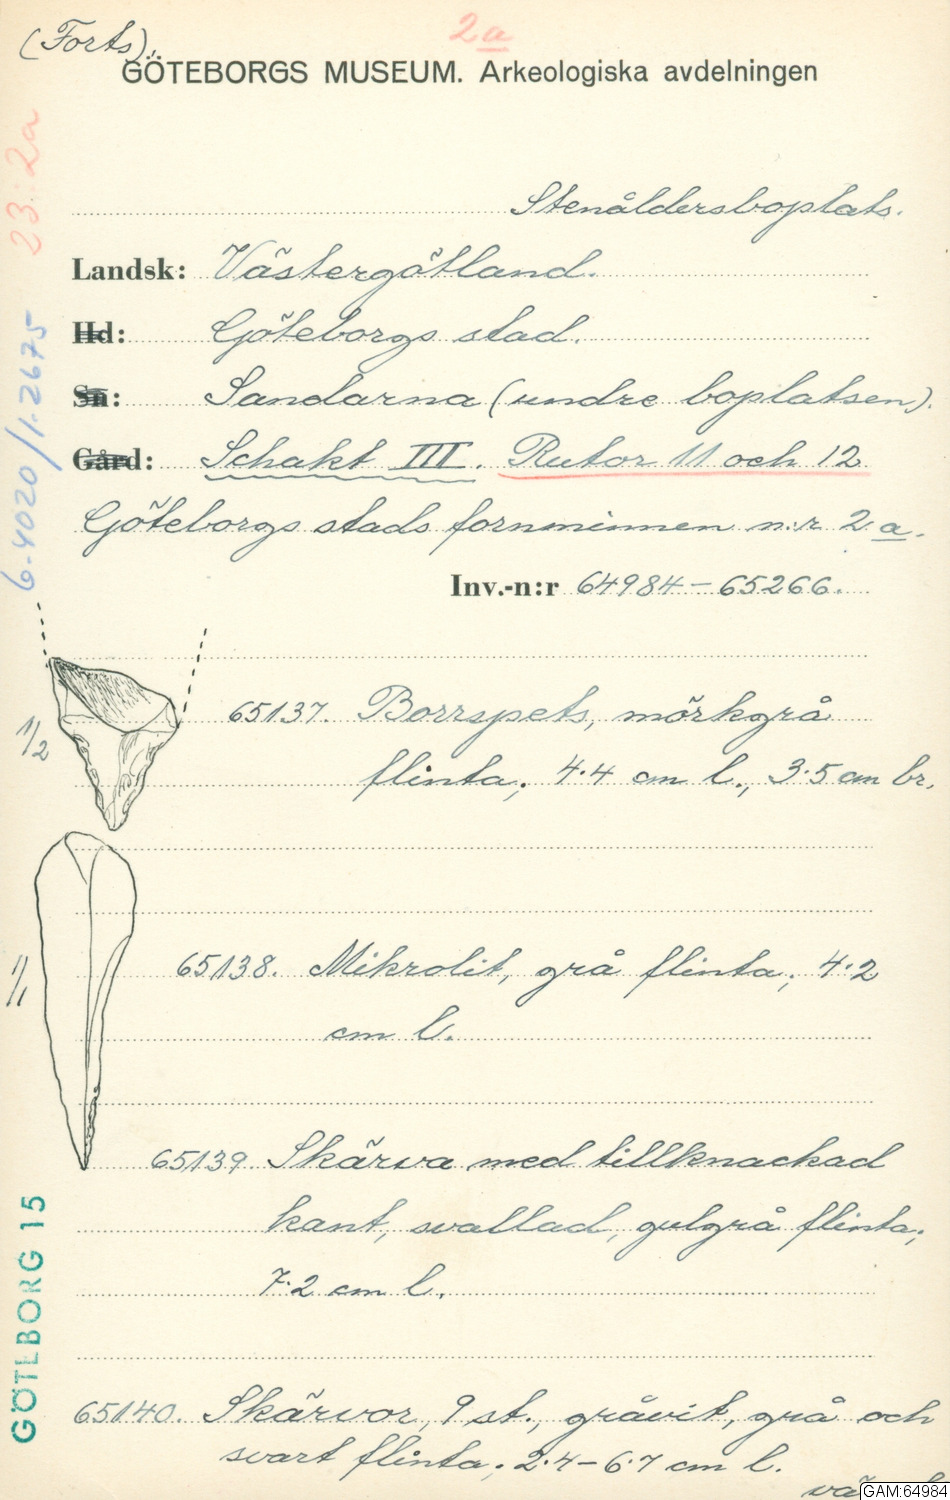 (Forts).
2a
GÖTEBORGS MUSEUM. Arkeologiska avdelningen
23:2a
6-4020/1.2675
Stenåldersboplats.
Landsk: Västergötland.
Hd: Göteborgs stad.
Sn: Sandarna (undre boplatsen).
Gård: Schakt III. Rutor 11 och 12
Göteborgs stads fornminnen n:r 2a.
Inv.-n:r 64984–65266.
1/2
65137. Borrspets, mörkgrå
flinta; 4.4 cm l., 3.5 cm br.
1/1
65138. Mikrolit, grå flinta; 4.2
cm l.
65139 Skärva med tillknackad
kant, svallad, gulgrå flinta;
7.2 cm l.
GÖTEBORG 15
65140. Skärvor, 9 st., gråvit, grå och
svart flinta; 2.4–6.7 cm l.
GAM:64984